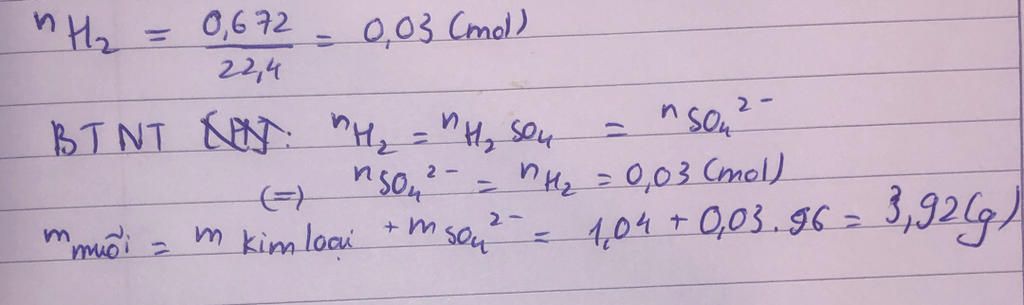 nH₂ = 0,672/22,4 = 0,03 (mol)
BTNT : nH₂ = nH₂SO₄ = nSO₄²⁻
(=) nSO₄²⁻ = nH₂ = 0,03 (mol)
mmuối = m kim loại + mSO₄²⁻ = 1,04 + 0,03.96 = 3,92(g)